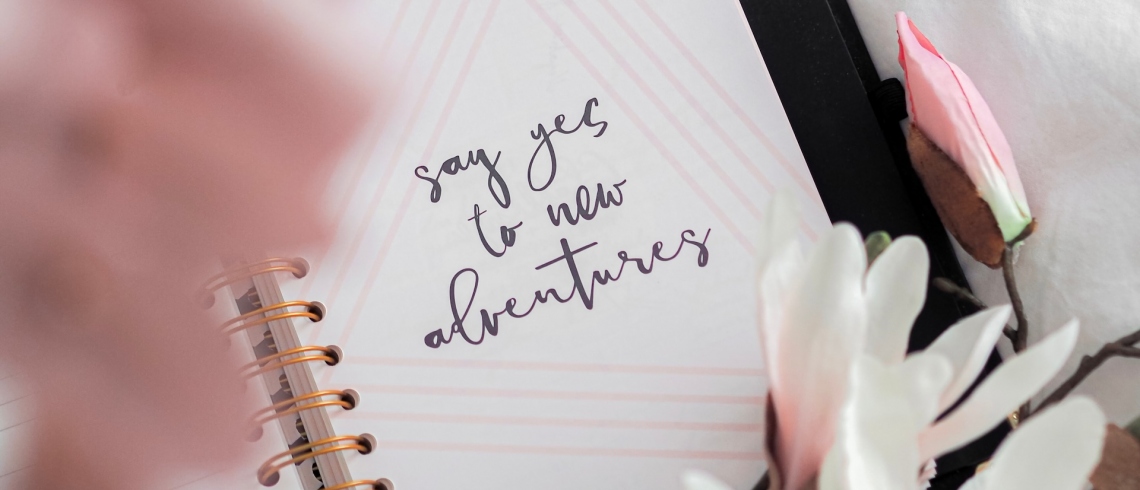 say yes
to new
adventures